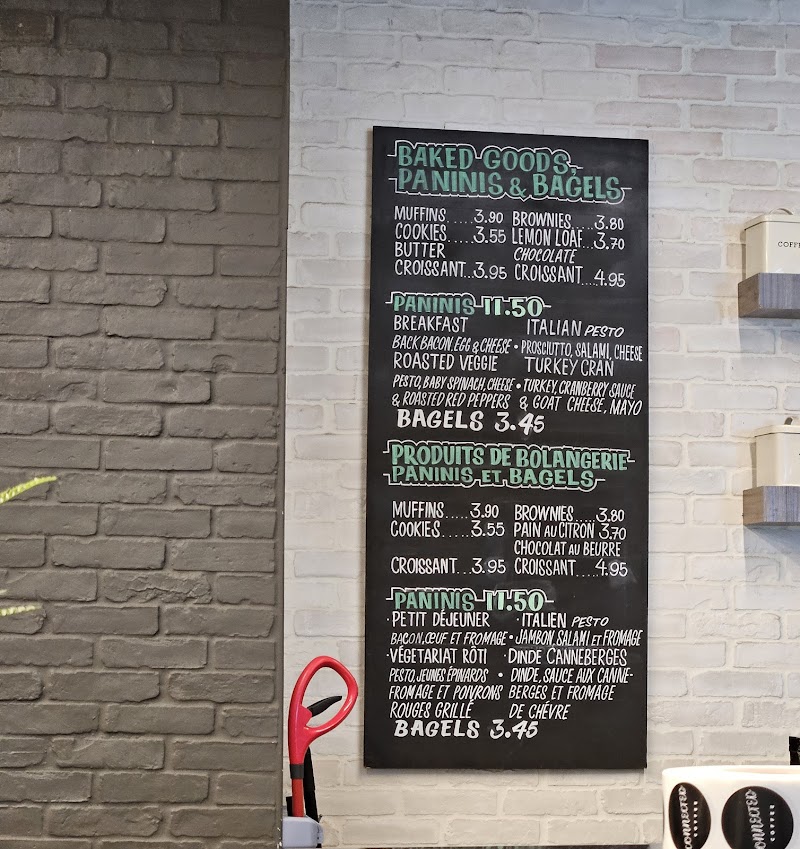 BAKED GOODS,
PANINIS & BAGELS
MUFFINS.....3.90 BROWNIES....3.80
COOKIES.....3.55 LEMON LOAF...3.70
BUTTER CHOCOLATE
CROISSANT...3.95 CROISSANT....4.95
PANINIS 11.50
BREAKFAST ITALIAN PESTO
BACK BACON, EGG & CHEESE • PROSCIUTTO, SALAMI, CHEESE
ROASTED VEGGIE TURKEY CRAN
PESTO, BABY SPINACH, CHEESE • TURKEY, CRANBERRY SAUCE
& ROASTED RED PEPPERS & GOAT CHEESE, MAYO
BAGELS 3.45
PRODUITS DE BOLANGERIE
PANINIS ET BAGELS
MUFFINS.....3.90 BROWNIES....3.80
COOKIES.....3.55 PAIN AU CITRON 3.70
CHOCOLAT AU BEURRE
CROISSANT...3.95 CROISSANT....4.95
PANINIS 11.50
· PETIT DÉJEUNER · ITALIEN PESTO
BACON, ŒUF ET FROMAGE • JAMBON, SALAMI ET FROMAGE
· VÉGETARIAT RÔTI · DINDE CANNEBERGES
PESTO, JEUNES ÉPINARDS • DINDE, SAUCE AUX CANNE-
FROMAGE ET POIVRONS BERGES ET FROMAGE
ROUGES GRILLÉ DE CHÈVRE
BAGELS 3.45
COFFE
CONNECTED
COFFEE
CONNECTED
COFFEE